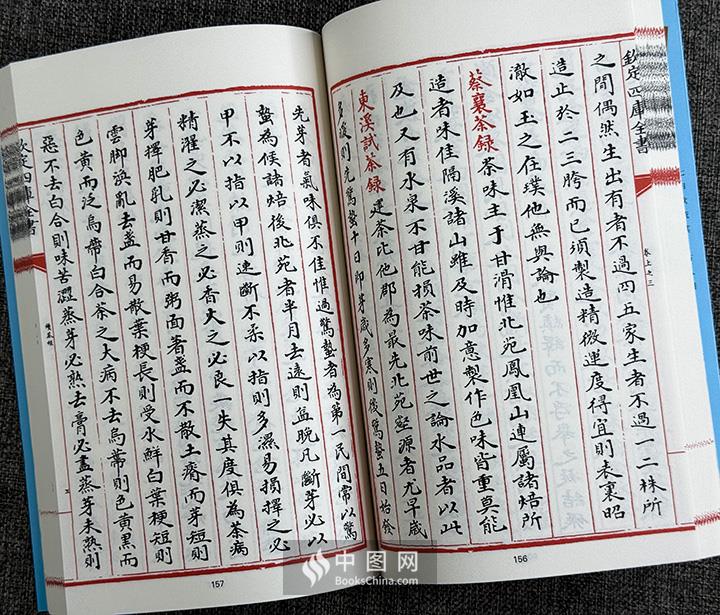 欽定四庫全書
卷上之三
之間偶然生出有者不過四五家生者不過一二株所
造止於二三胯而已須製造精微運度得宜則表裏昭
澈如玉之在璞他無與論也
蔡襄茶録 茶味主于甘滑惟北苑鳳凰山連屬諸焙所
造者味佳隔溪諸山雖及時加意製作色味皆重莫能
及也又有水泉不甘能損茶味前世之論水品者以此
東溪試茶録 建茶比他郡為最先北苑壑源者尤早歲
多暖則先驚蟄十日即芽歲多寒則後驚蟄五日始發
156
先芽者氣味俱不佳惟過驚蟄者為第一民間常以驚
蟄為候諸焙後北苑者半月去遠則益晚凡斷芽必以
甲不以指以甲則速斷不柔以指則多濕易損擇之必
精濯之必潔蒸之必香火之必良一失其度俱為茶病
芽擇肥乳則甘香而粥面著盞而不散土瘠而芽短則
雲脚渙亂去盞而易散葉梗長則受水鮮白葉梗短則
色黄而泛烏蒂白合茶之大病不去烏蒂則色黄黑而
惡不去白合則味苦澀蒸芽必熟去膏必盡蒸芽未熟則
欽定四庫全書
續茶經
157
中图网
BooksChina.com